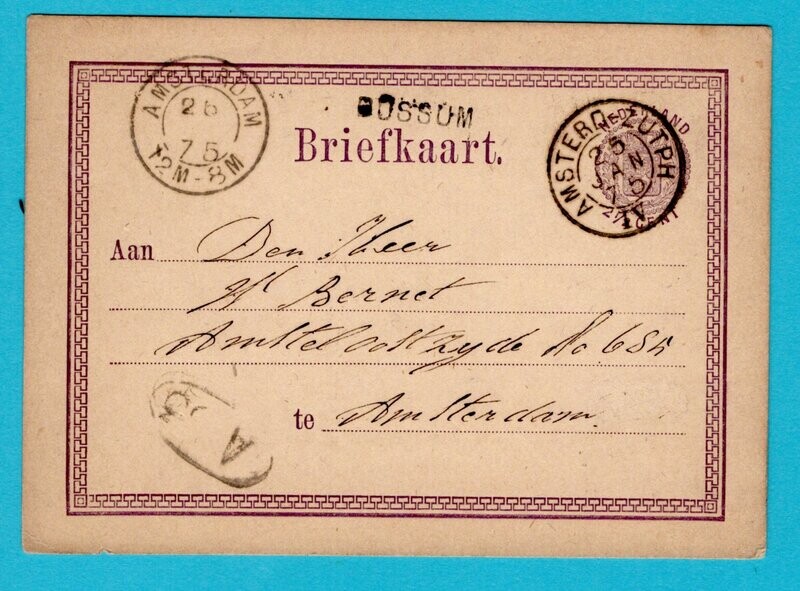 AMSTERDAM
26
75
12M-8M
BUSSUM
AMSTERD-ZUTPH
25
JAN
75
IV
NEDERLAND
2½ CENT
Briefkaart.
Aan Den Heer
Bernet
Amsteloostzyde No 685
te Amsterdam
A